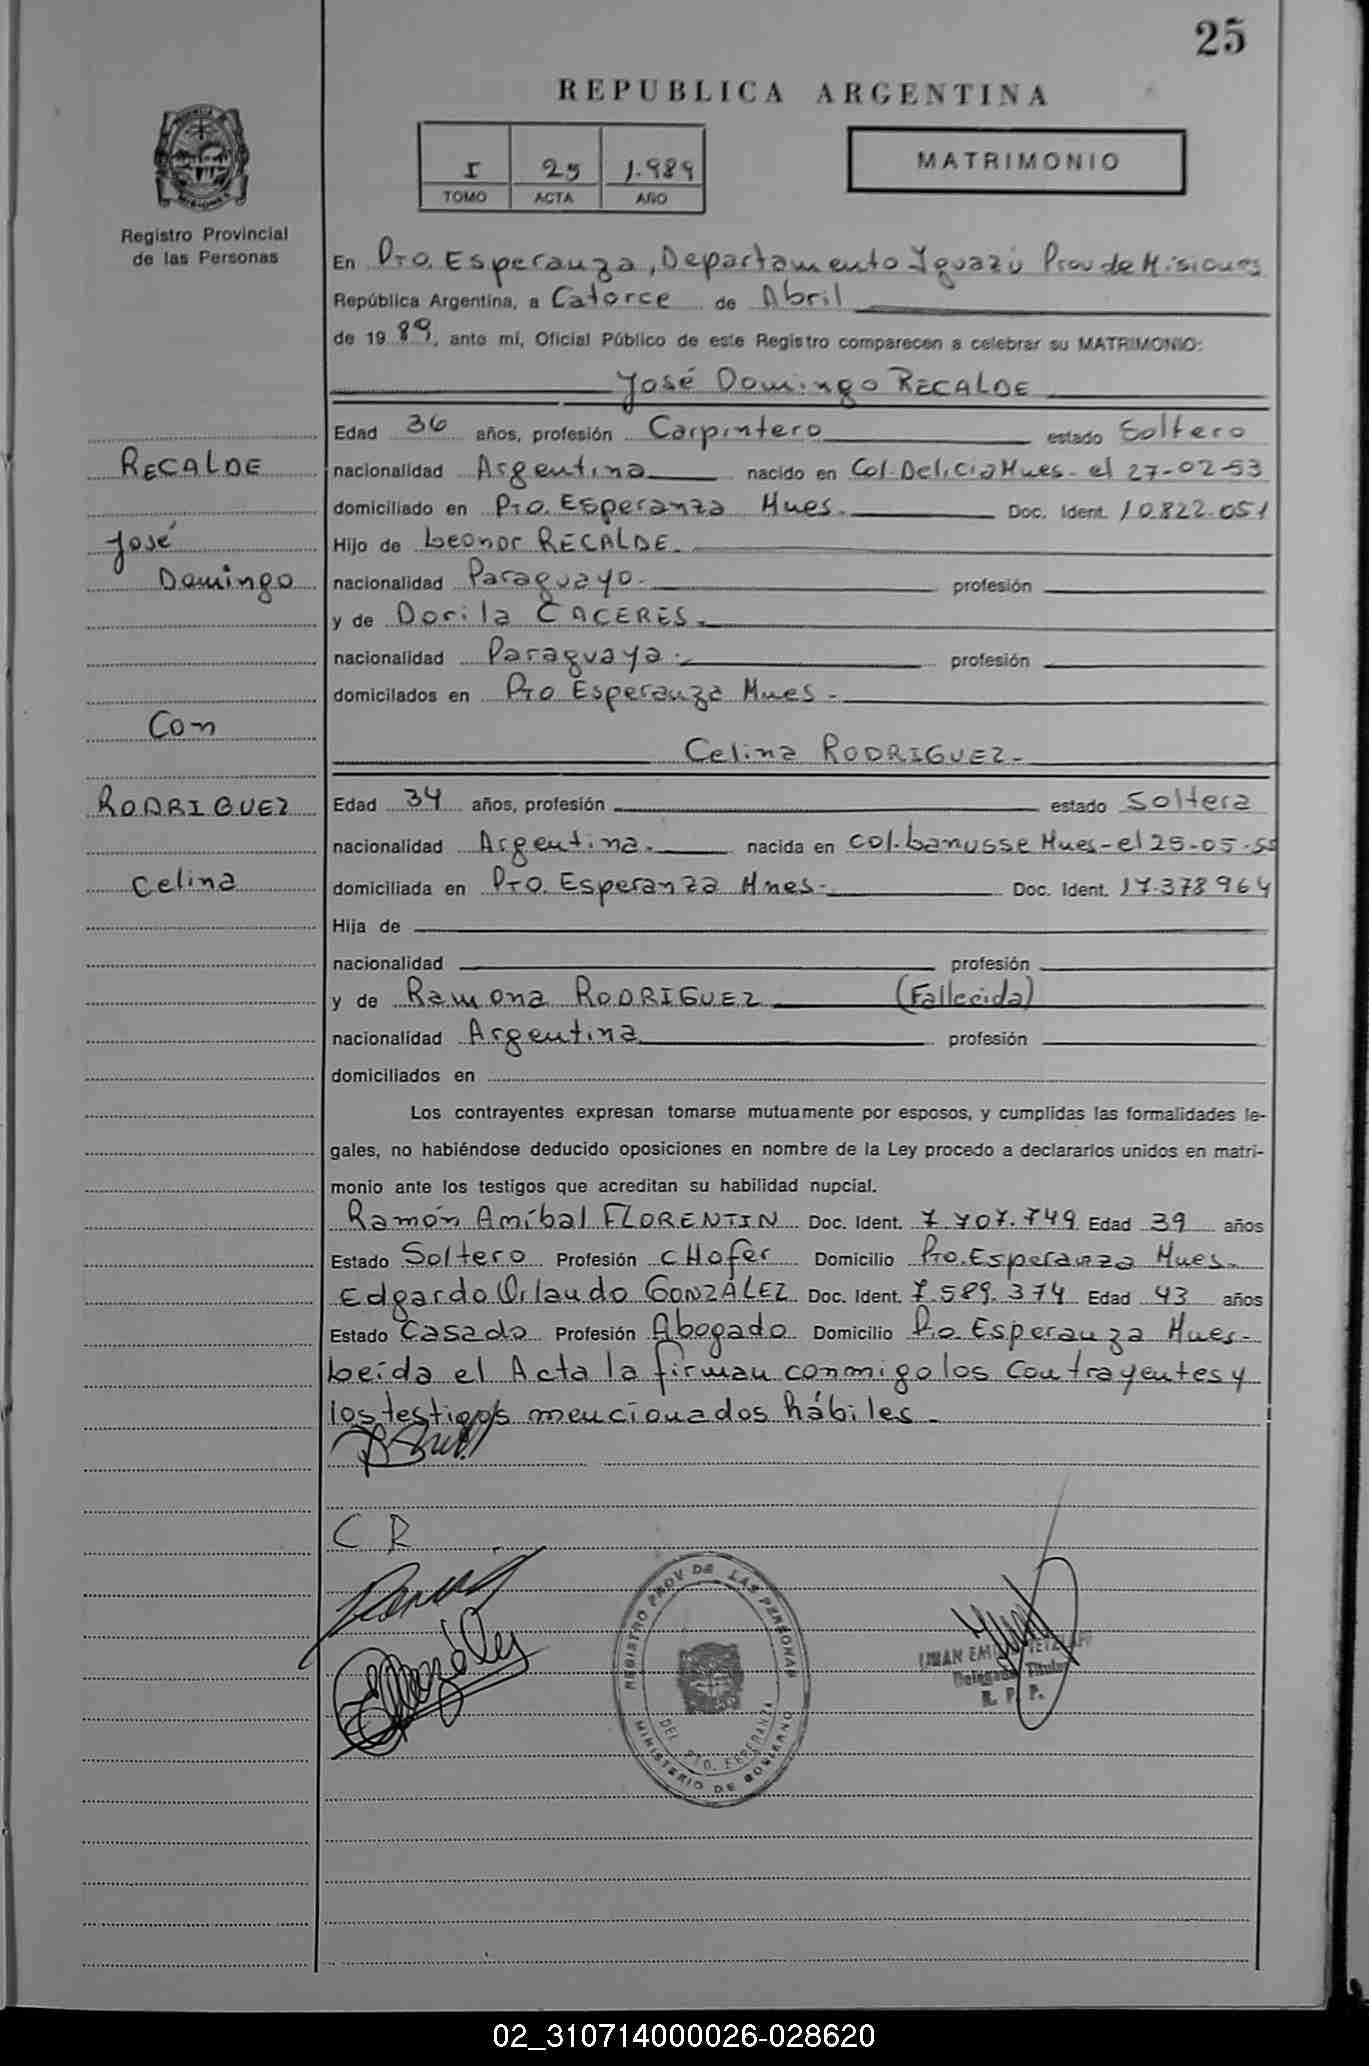 25
REPUBLICA ARGENTINA
I 25 1.989
TOMO ACTA AÑO
MATRIMONIO
Registro Provincial
de las Personas
En Pto. Esperanza, Departamento Iguazú Prov de Misiones
República Argentina, a Catorce de Abril
de 1989, ante mí, Oficial Público de este Registro comparecen a celebrar su MATRIMONIO:
José Domingo RECALDE
Edad 36 años, profesión Carpintero estado Soltero
RECALDE
nacionalidad Argentina nacido en Col. Delicia Mnes - el 27-02-53
domiciliado en Pto. Esperanza Mnes. Doc. Ident. 10.822.051
José
Hijo de Leonor RECALDE
Domingo
nacionalidad Paraguayo. profesión
y de Dorila CACERES.
nacionalidad Paraguaya. profesión
domicilados en Pto Esperanza Mnes -
Con
Celina RODRIGUEZ -
RODRIGUEZ
Edad 34 años, profesión estado Soltera
nacionalidad Argentina. nacida en Col. Lanusse Mnes - el 25-05-55
Celina
domiciliada en Pto. Esperanza Mnes - Doc. Ident. 17.378964
Hija de
nacionalidad profesión
y de Ramona RODRIGUEZ (Fallecida)
nacionalidad Argentina profesión
domiciliados en
Los contrayentes expresan tomarse mutuamente por esposos, y cumplidas las formalidades le-
gales, no habiéndose deducido oposiciones en nombre de la Ley procedo a declararlos unidos en matri-
monio ante los testigos que acreditan su habilidad nupcial.
Ramón Aníbal FLORENTIN Doc. Ident. 7.707.749 Edad 39 años
Estado Soltero Profesión CHofer Domicilio Pto. Esperanza Mnes -
Edgardo Orlando GONZÁLEZ Doc. Ident. 7.589.374 Edad 43 años
Estado Casado Profesión Abogado Domicilio Pto. Esperanza Mnes -
Leída el Acta la firman conmigo los contrayentes y
los testigos mencionados hábiles -
C R
REGISTRO PROV DE LAS PERSONAS
DEL. PTO. ESPERANZA
MINISTERIO DE GOBIERNO
Delegado Titular
R. P. P.
02_310714000026-028620